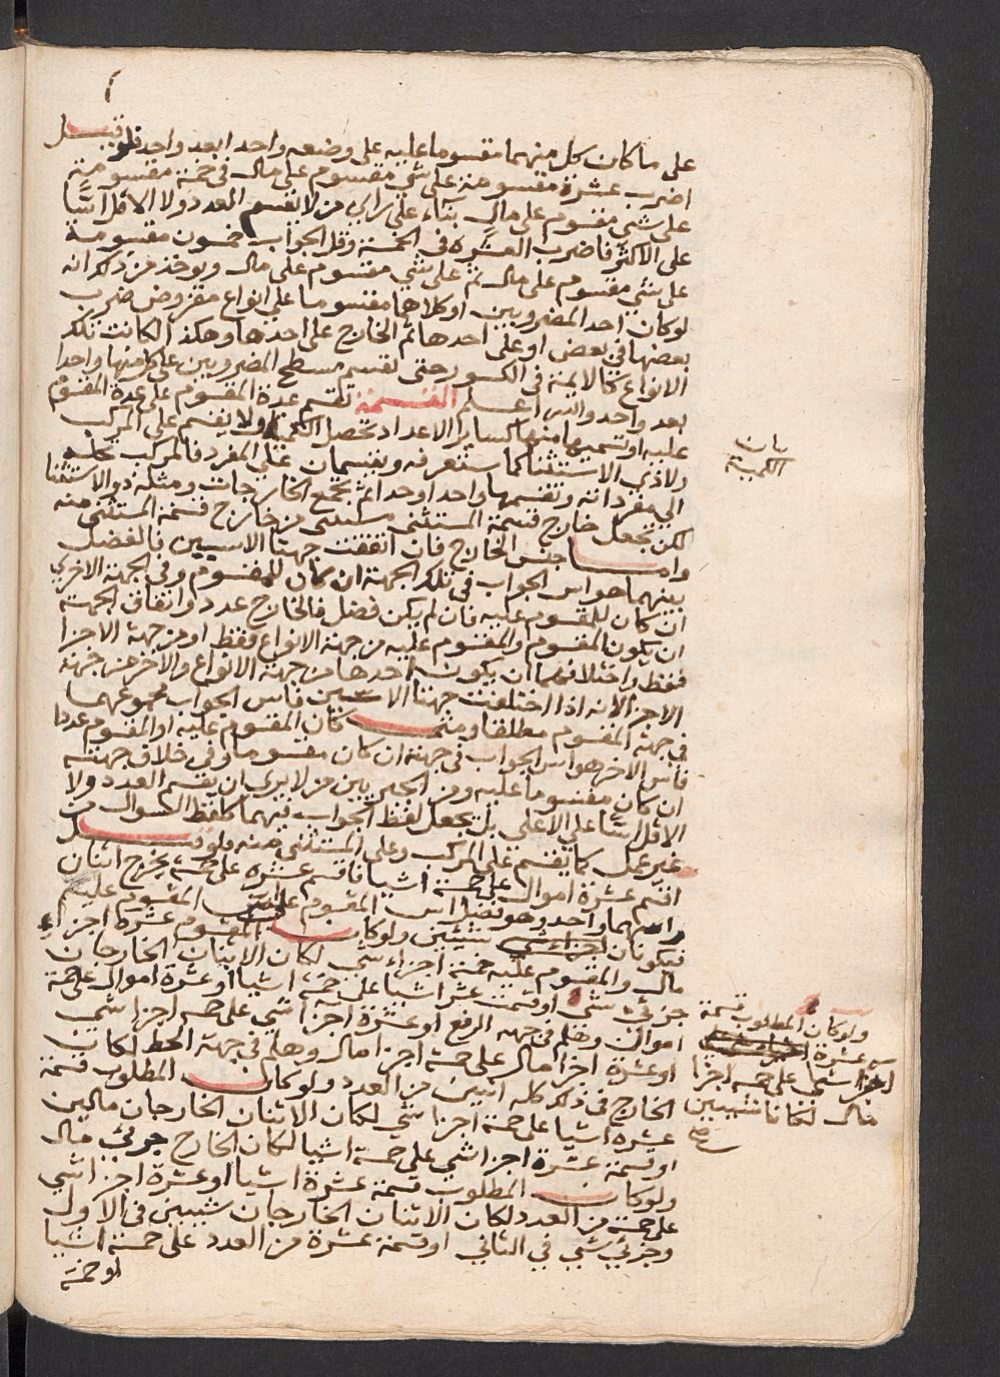 على ما كان كل منهما مقسوما عليه على وضعه واحدا بعد واحد فلو قيل
اضرب عشرة مقسومة على شي مقسوم على مال في خمسة مقسومة
على شي مقسوم على مال بناء على راي من لا يقسم العدد ولا الاقل اسّا
على الاكثر فاضرب العشرة في الخمسة وقل الجواب خمسون مقسومة
على شي مقسوم على مال ثم على شي مقسوم على مال ويوخذ من ذلك انه
لو كان احد المضروبين او كلاهما مقسوما على انواع مفروض ضرب
بعضها في بعض او على احدها ثم الخارج على احدها وهكذا لكانت تلك
الانواع كالايمة في الكسور حتى تقسم مسطح المضروبين على كل منها واحدا
بعد واحد والله اعلم القسمة تقسم عدة المقسوم على عدة المقسوم
عليه او تسميها منها كساير الاعداد تحصل الكمية ولا يقسم على المركب
ولا ذي الاستثنا كما ستعرفه ويقسمان على المفرد فالمركب تحله
الى مفرداته وتقسمها واحدا واحدا ثم تجمع الخارجات ومثله ذو الاستثنا
لكن تجعل خارج قسمة المستثنى مستثنى من خارج قسمة المستثنى منه
واما جنس الخارج فان اتفقت جهتا الاسين فالفضل
بينهما هو اس الجواب في تلك الجهة ان كان للمقسوم وفي الجهة الاخرى
ان كان للمقسوم عليه فان لم يكن فضل فالخارج عدد واتفاق الجهة
ان يكون المقسوم والمقسوم عليه من جهة الانواع فقط او من جهة الاجزا
فقط واختلافهما ان يكون احدها من جهة الانواع والاخر من جهة
الاجزا لانه اذا اختلفت جهتا الاسين فاس الجواب مجموعهما
في جهة المقسوم مطلقا ومتى كان المقسوم عليه او المقسوم عددا
فاس الاخر هو اس الجواب في جهته ان كان مقسوما وفي خلاف جهته
ان كان مقسوما عليه ومن الجبريين من لا يرى ان يقسم العدد ولا
الاقل اسّا على الاعلى بل يجعل لفظ الجواب فيهما كلفظ السوال من
غير عمل كما يقسم على المركب وعلى المستثنى منه فلو قيل
اقسم عشرة اموال على خمسة اشيا فاقسم عشرة على خمسة يخرج اثنان
واسهما واحد وهو فضل اس المقسوم على اس المقسوم عليه
فيكونان شيئين ولو كان المقسوم عشرة اجزاء
مال والمقسوم عليه خمسة اجزاء شي لكان الاثنان الخارجان
جزئي شي او قسمت عشر اشيا على خمسة اشيا او عشرة اموال على خمسة
اموال وهلم في جهة الرفع او عشرة اجزا شي على خمسة اجزا شي
او عشرة اجزا مال على خمسة اجزا مال وهلم في جهة الحط لكان
الخارج في ذلك كله اثنين من العدد ولو كان المطلوب قسمة
عشرة اشيا على خمسة اجزا شي لكان الاثنان الخارجان مالين
او قسمة عشرة اجزا شي على خمسة اشيا لكان الخارج جزئي مال
ولو كان المطلوب قسمة عشرة اشيا او عشرة اجزا شي
على خمسة من العدد لكان الاثنان الخارجان شيئين في الاول
وجزئي شي في الثاني او قسمة عشرة من العدد على خمسة اشيا
او خمسة
بان
الكمية
ولو كان المطلوب قسمة
عشرة
اجزا شي على خمسة اجزا
مال لكانا شيئين
صح